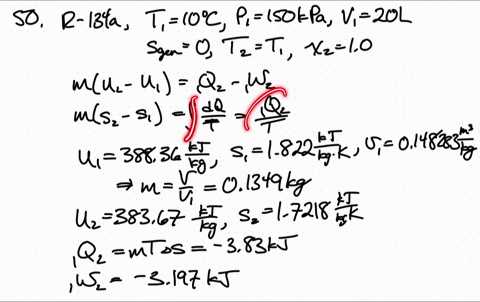 50. R-134a, T₁=10°C, P₁=150kPa, V₁=20L
Sgen=0, T₂=T₁, x₂=1.0
m(u₂-u₁) = ₁Q₂ - ₁W₂
m(s₂-s₁) = ∫dQ/T = ₁Q₂/T
u₁=388.36 kJ/kg, s₁=1.822 kJ/kg·K, v₁=0.148283 m³/kg
⇒ m=V/v₁=0.1349kg
u₂=383.67 kJ/kg, s₂=1.7218 kJ/kgK
₁Q₂=mTΔs=-3.83kJ
₁W₂=-3.197 kJ